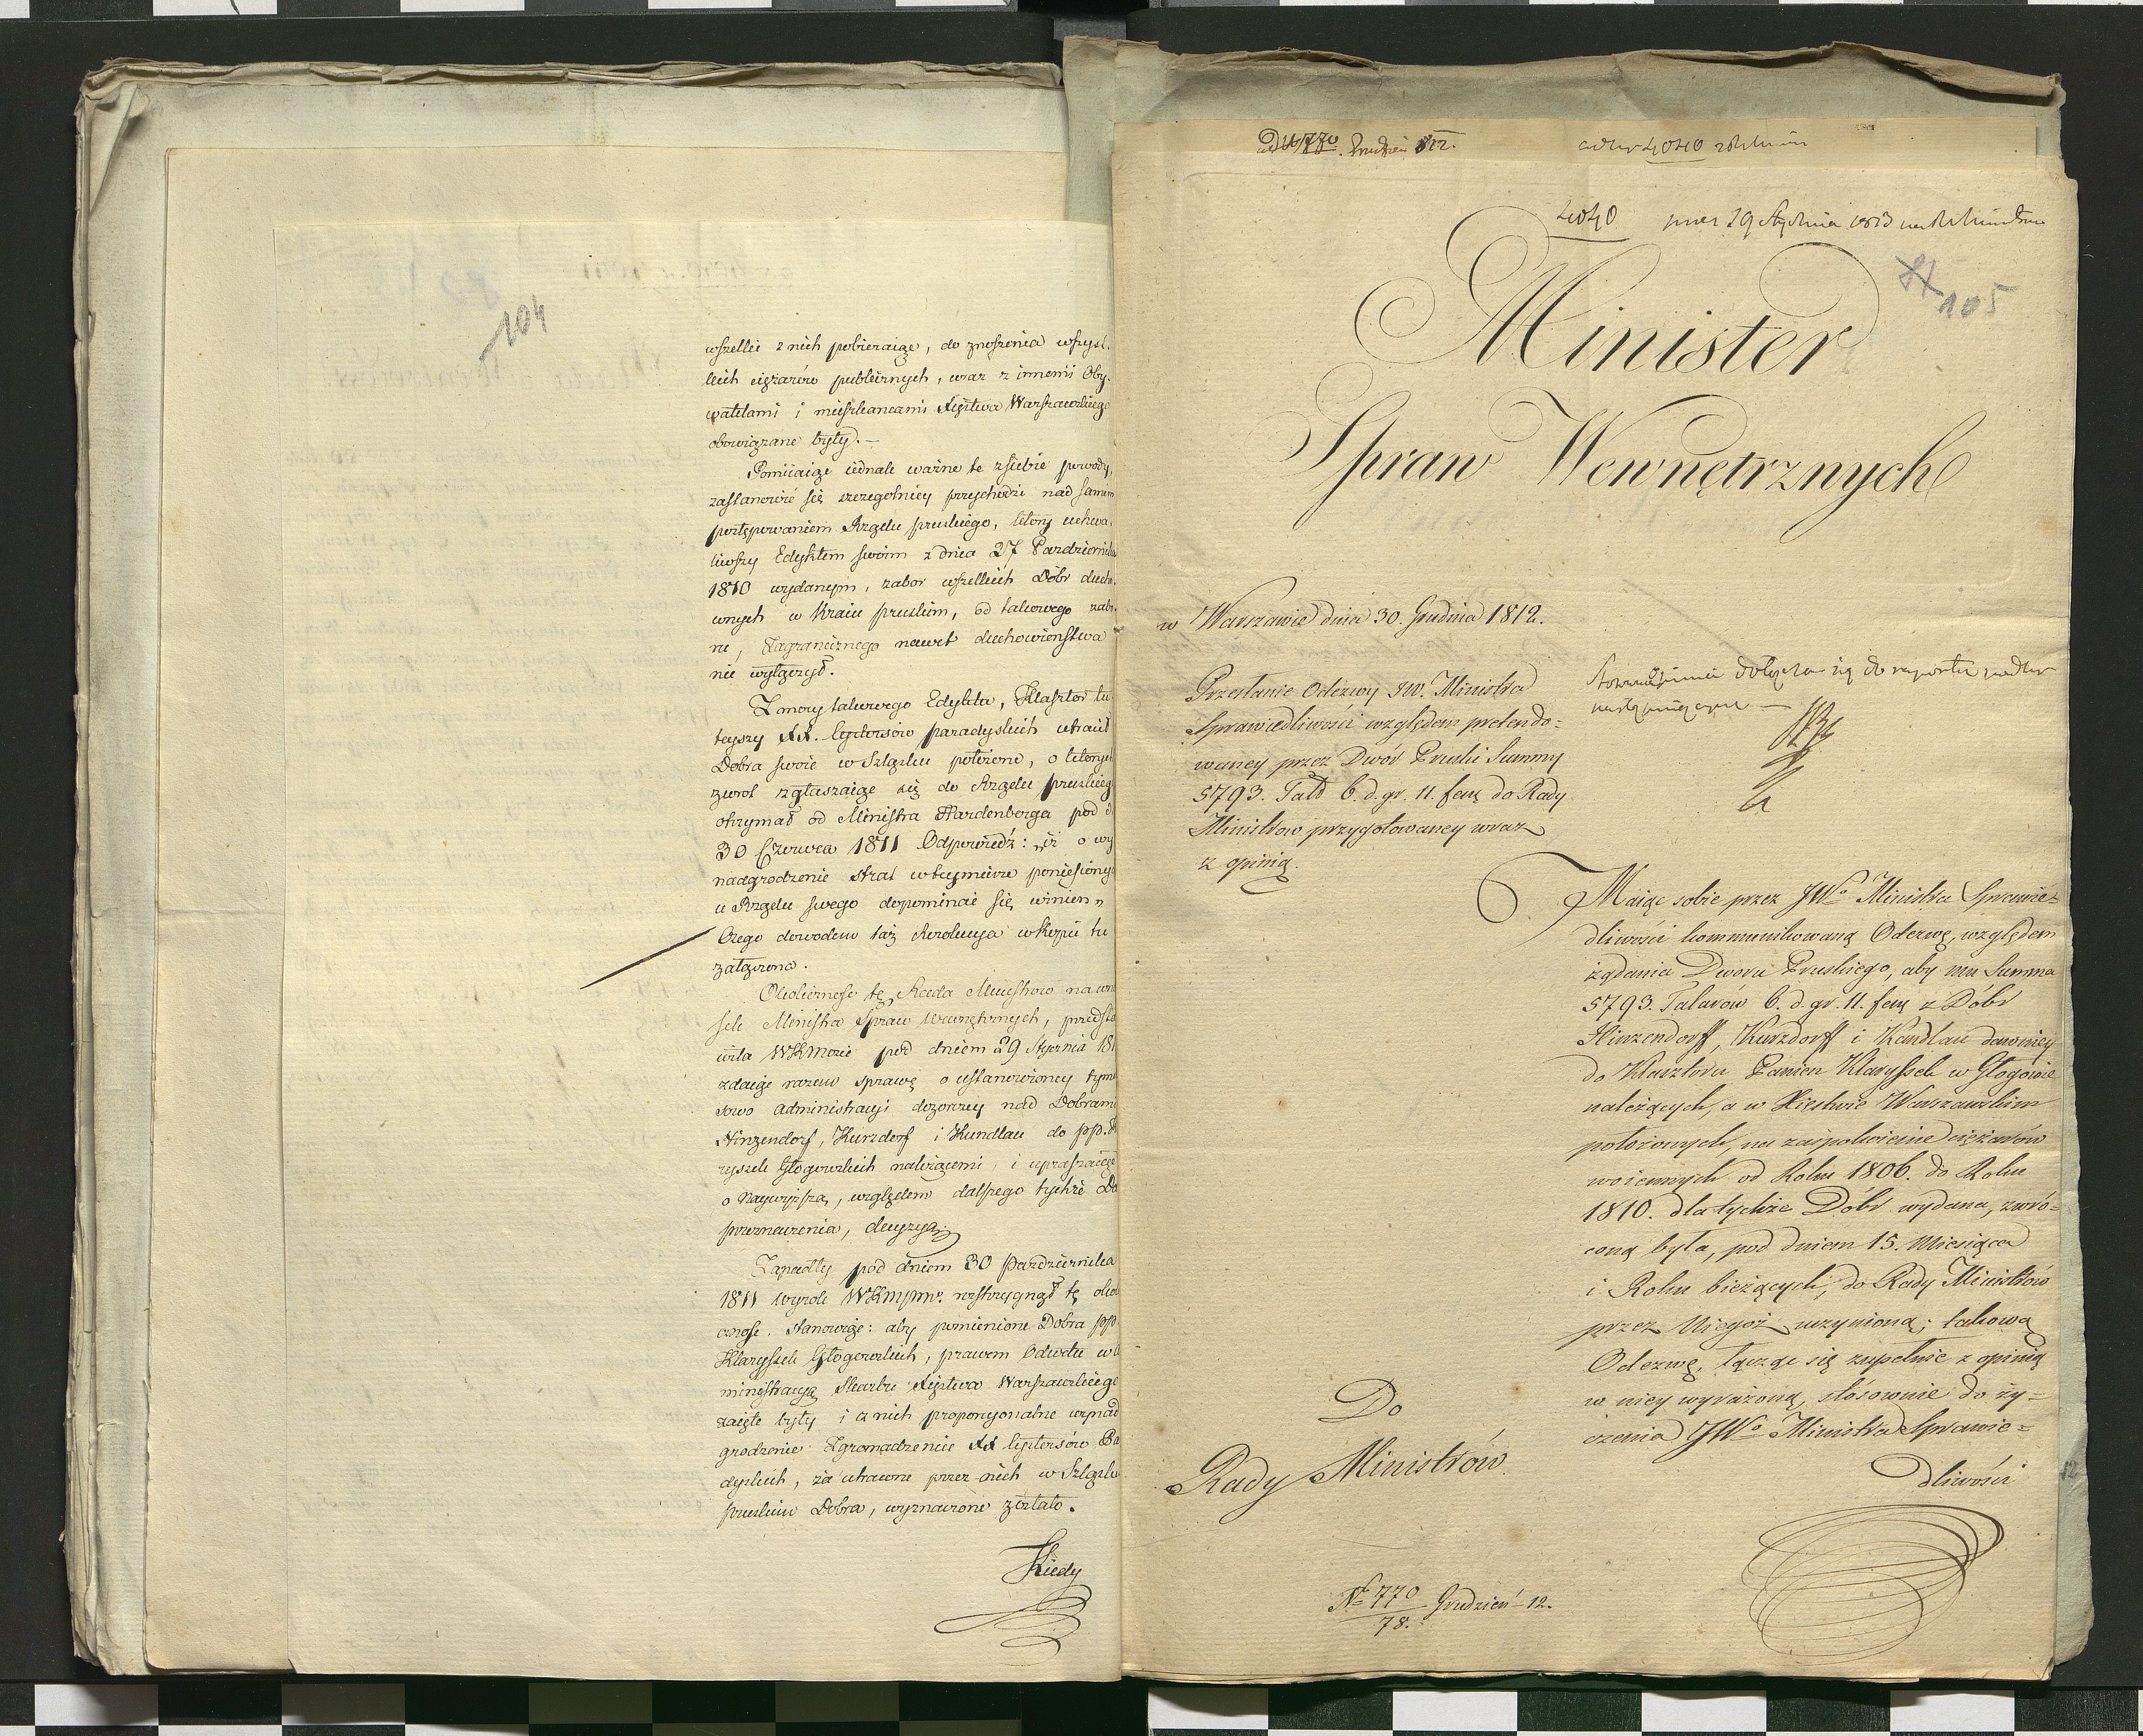 104
wszelkie z nich pobieraiąc, do znoszenia wszyst-
kich ciężarów publicznych, wraz z innemi Oby-
watelami i mieszkancami Xięstwa Warszawskiego
obowiązane były. —
Pomiiaiąc iednak ważne te z siebie powody,
zastanowić się szczegolniey przychodzi nad samem
postępowaniem Rządu pruskiego, ktory
Edyktem swoim z dnia 27 Pazdziernika
1810 wydanym, zabor wszelkich Dóbr ducho-
wnych w Kraiu pruskim, od takowego zabo-
ru, Zagranicznego nawet duchowienstwa
nie wyłączył.
Z mocy takowego Edyktu, Klasztor tu-
teyszy XX. Cystersów paradyskich utracił
Dobra swoie w Szląsku położone, o ktorych
zwrot zgłaszaiąc się do Rządu pruskiego
otrzymał od Ministra Hardenberga pod d.
30 Czerwca 1811 Odpowiedź: „iż o wy
nadgrodzenie strat w tey mierze poniesionych
u Rządu swego dopominać się winien„
Czego dowodem taż Rezolucya w kopii tu
załączona.
Okoliczność tę, Rada Ministrow na wnio
sek Ministra Spraw Wewnętrznych, przedsta
wiła WKMości pod dniem 29 Stycznia 181
zdaiąc razem sprawę o ustanowioney tymcza
sowo administracyi dozorczey nad Dobrami
Hinzendorf, Kurzdorf i Kundlau do pp. Kla
ryssek Głogowskich należącemi, i upraszaiąc
o Naywyższą, względem dalszego tychże Dobr
przeznaczenia, decyzyą.
Zapadły pod dniem 30 Pazdziernika
1811 wyrok WKMPM. rozstrzygnął tę okoli
czność, stanowiąc: aby pomienione Dobra pp.
Klaryssek Głogowskich, prawem Odwetu w ad
ministracyą Skarbu Xięstwa Warszawskiego
zaięte były i z nich proporcyonalne wynad
grodzenie Zgromadzeniu XX Cystersów Para
dyskich, za utracone przez nich w Szląsku
pruskim Dobra, wyznaczone zostało.
Kiedy
ad N 770 Grudzien 812.
4040 29 Stycznia 1813
105
Minister
Spraw Wewnętrznych
w Warszawie dnia 30. Grudnia 1812.
Przesłanie Odezwy JW. Ministra
Sprawiedliwości względem pretendo=
waney przez Dwór Pruski Summy
5793. Tal. 6. d. gr. 11. fen. do Rady
Ministrow przygotowaney wraz
z opinią.
dołącza się do raportu
Maiąc sobie przez JWo Ministra Sprawie=
dliwości kommunikowaną Odezwę, względem
żądania Dworu Pruskiego, aby mu Summa
5793. Talarów 6. d. gr. 11. fen. z Dóbr
Hinzendorff, Kurzdorff i Kandlau dawniey
do Klasztoru Panien Klaryssek w Głogowie
należących, a w Xięstwie Warszawskim
położonych, na zaspokoienie ciężarów
woiennych od Roku 1806. do Roku
1810. dla tychże Dóbr wydana, zwró=
coną była, pod dniem 15. Miesiąca
i Roku bieżących, do Rady Ministrów
przez Niegoż uczynioną; takową
Odezwę, łącząc się zupełnie z opinią
w niey wyrażoną, stósownie do ży=
czenia JWo Ministra Sprawie=
dliwości
Do
Rady Ministrów.
No 770/78. Grudzień – 12.